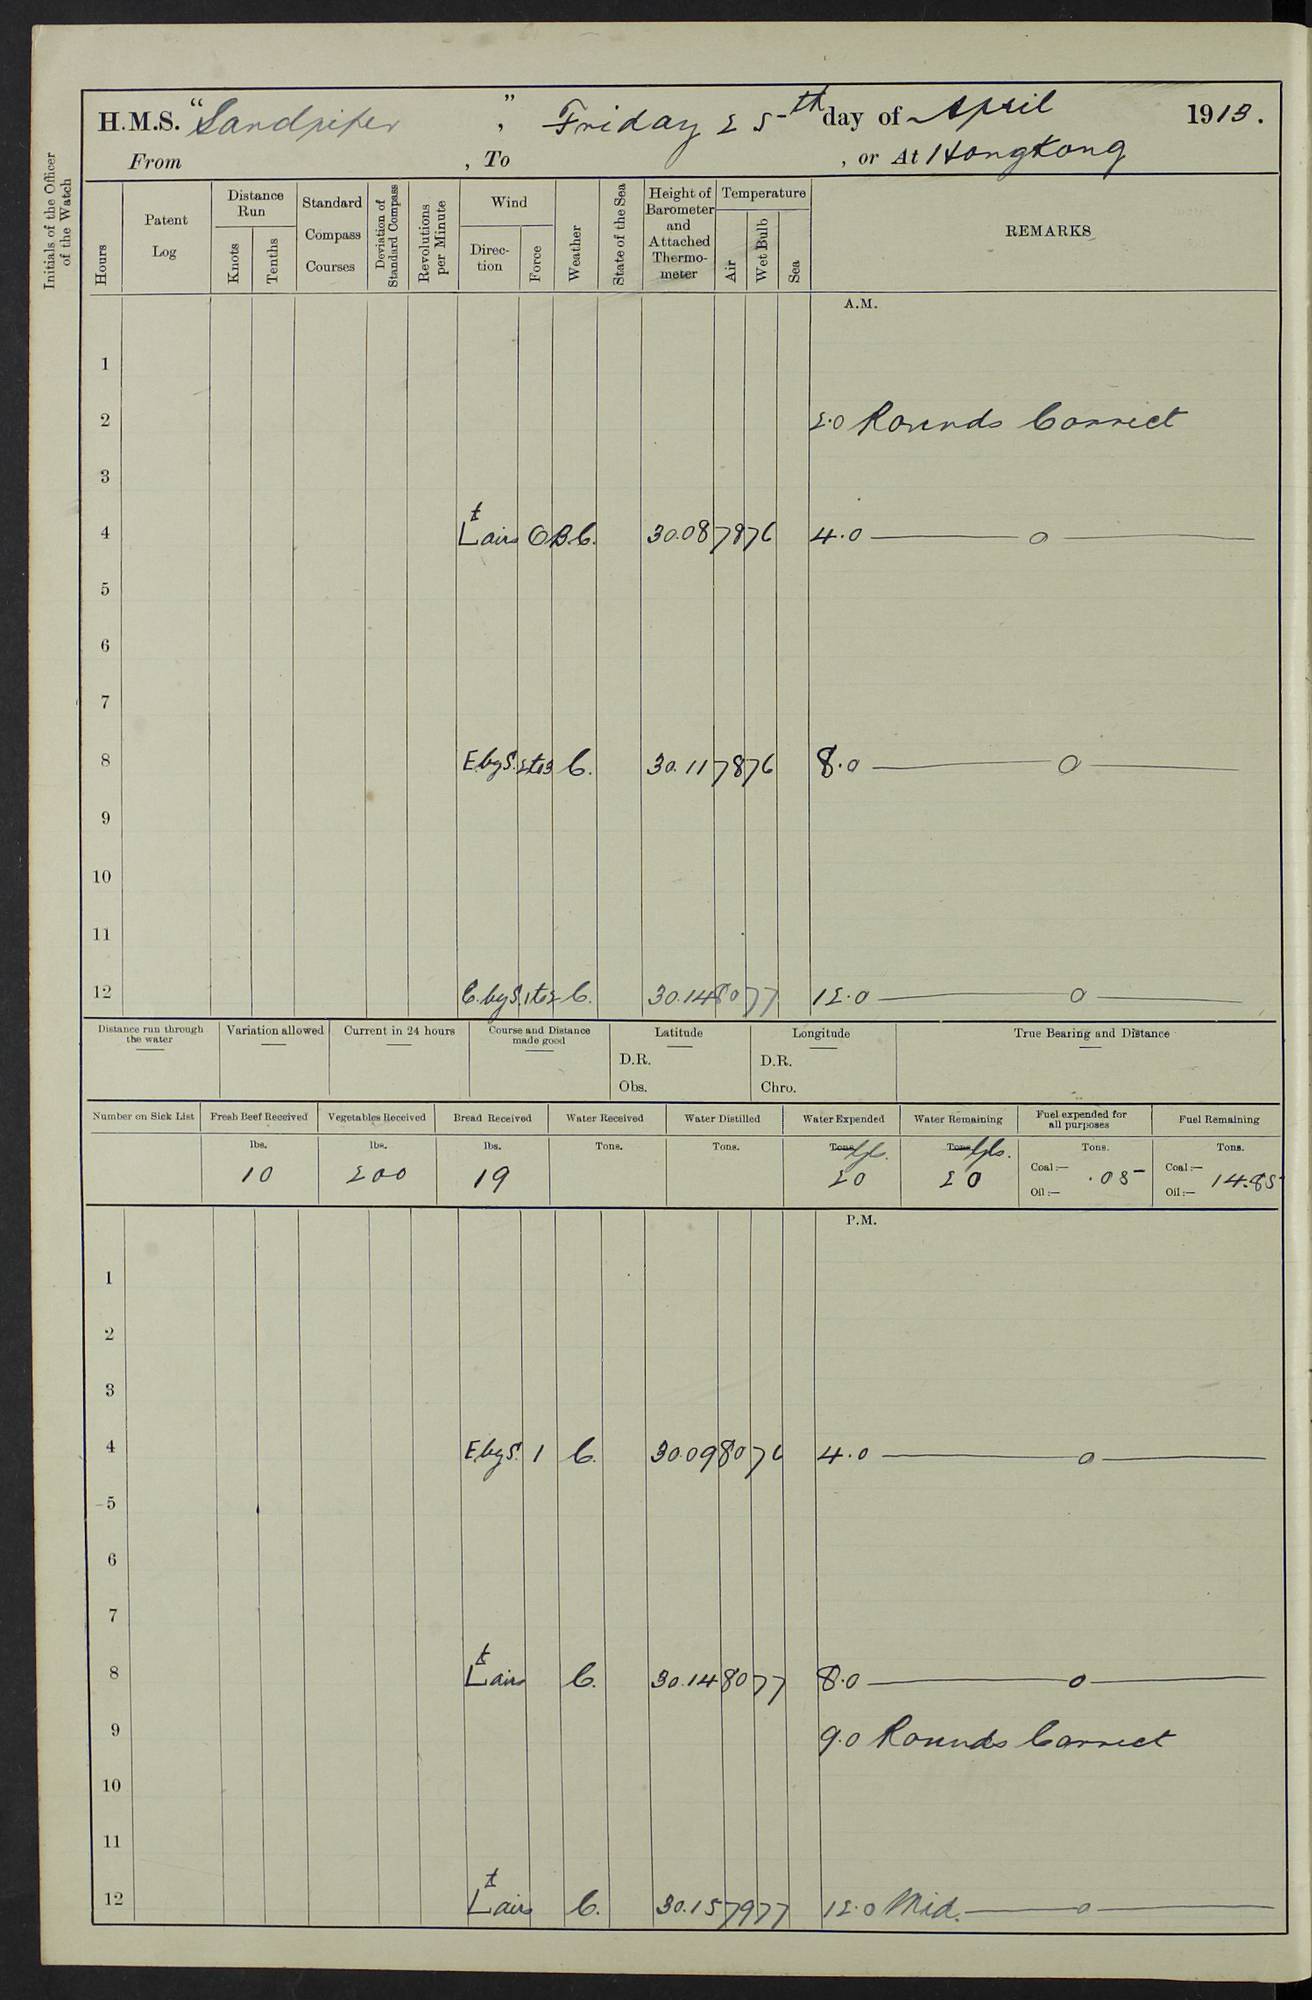 H.M.S. "Sandpiper", Friday 25th day of April 1913.
From , To , or At Hongkong
Initials of the Officer of the Watch
Hours
Patent Log
Distance Run
Knots
Tenths
Standard Compass Courses
Deviation of Standard Compass
Revolutions per Minute
Wind
Direction
Force
Weather
State of the Sea
Height of Barometer and Attached Thermometer
Temperature
Air
Wet Bulb
Sea
REMARKS
A.M.
1
2 2.0 Rounds Correct
3
4 Lt airs 0 B.C. 30.08 78 76 4.0 — o —
5
6
7
8 E by S. 2 to 3 C. 30.11 78 76 8.0 — o —
9
10
11
12 E. by S. 1 to 2 C. 30.14 80 77 12.0 — o —
Distance run through the water
Variation allowed
Current in 24 hours
Course and Distance made good
Latitude
D.R.
Obs.
Longitude
D.R.
Chro.
True Bearing and Distance
Number on Sick List
Fresh Beef Received
lbs.
10
Vegetables Received
lbs.
200
Bread Received
lbs.
19
Water Received
Tons.
Water Distilled
Tons.
Water Expended
Tons
20
Water Remaining
Tons
20
Fuel expended for all purposes
Tons.
Coal:— .05
Oil:—
Fuel Remaining
Tons.
Coal:— 14.85
Oil:—
P.M.
1
2
3
4 E by S. 1 C. 30.09 80 76 4.0 — o —
5
6
7
8 Lt airs C. 30.14 80 77 8.0 — o —
9 9.0 Rounds Correct
10
11
12 Lt airs C. 30.15 79 77 12.0 Mid. — o —